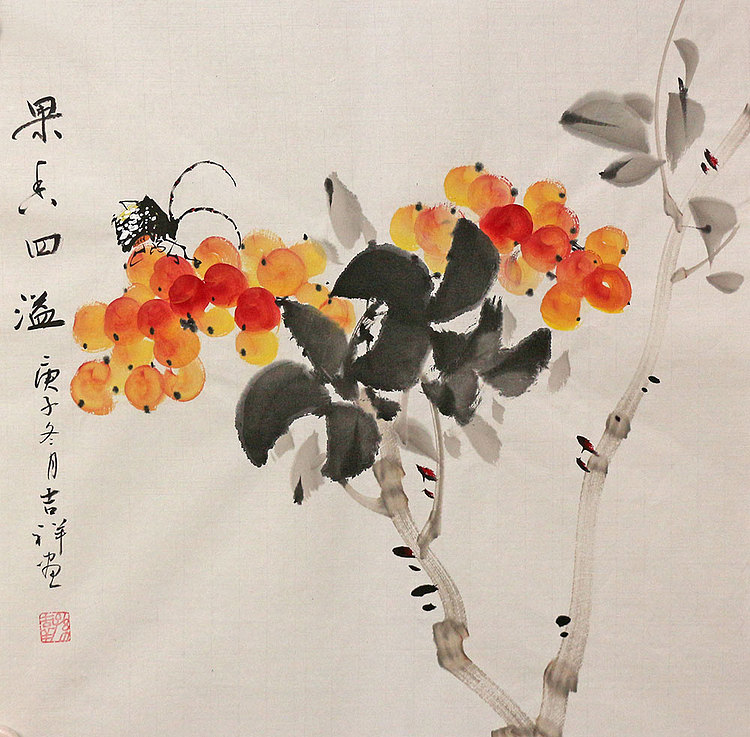 果香四溢
庚子冬月吉祥画